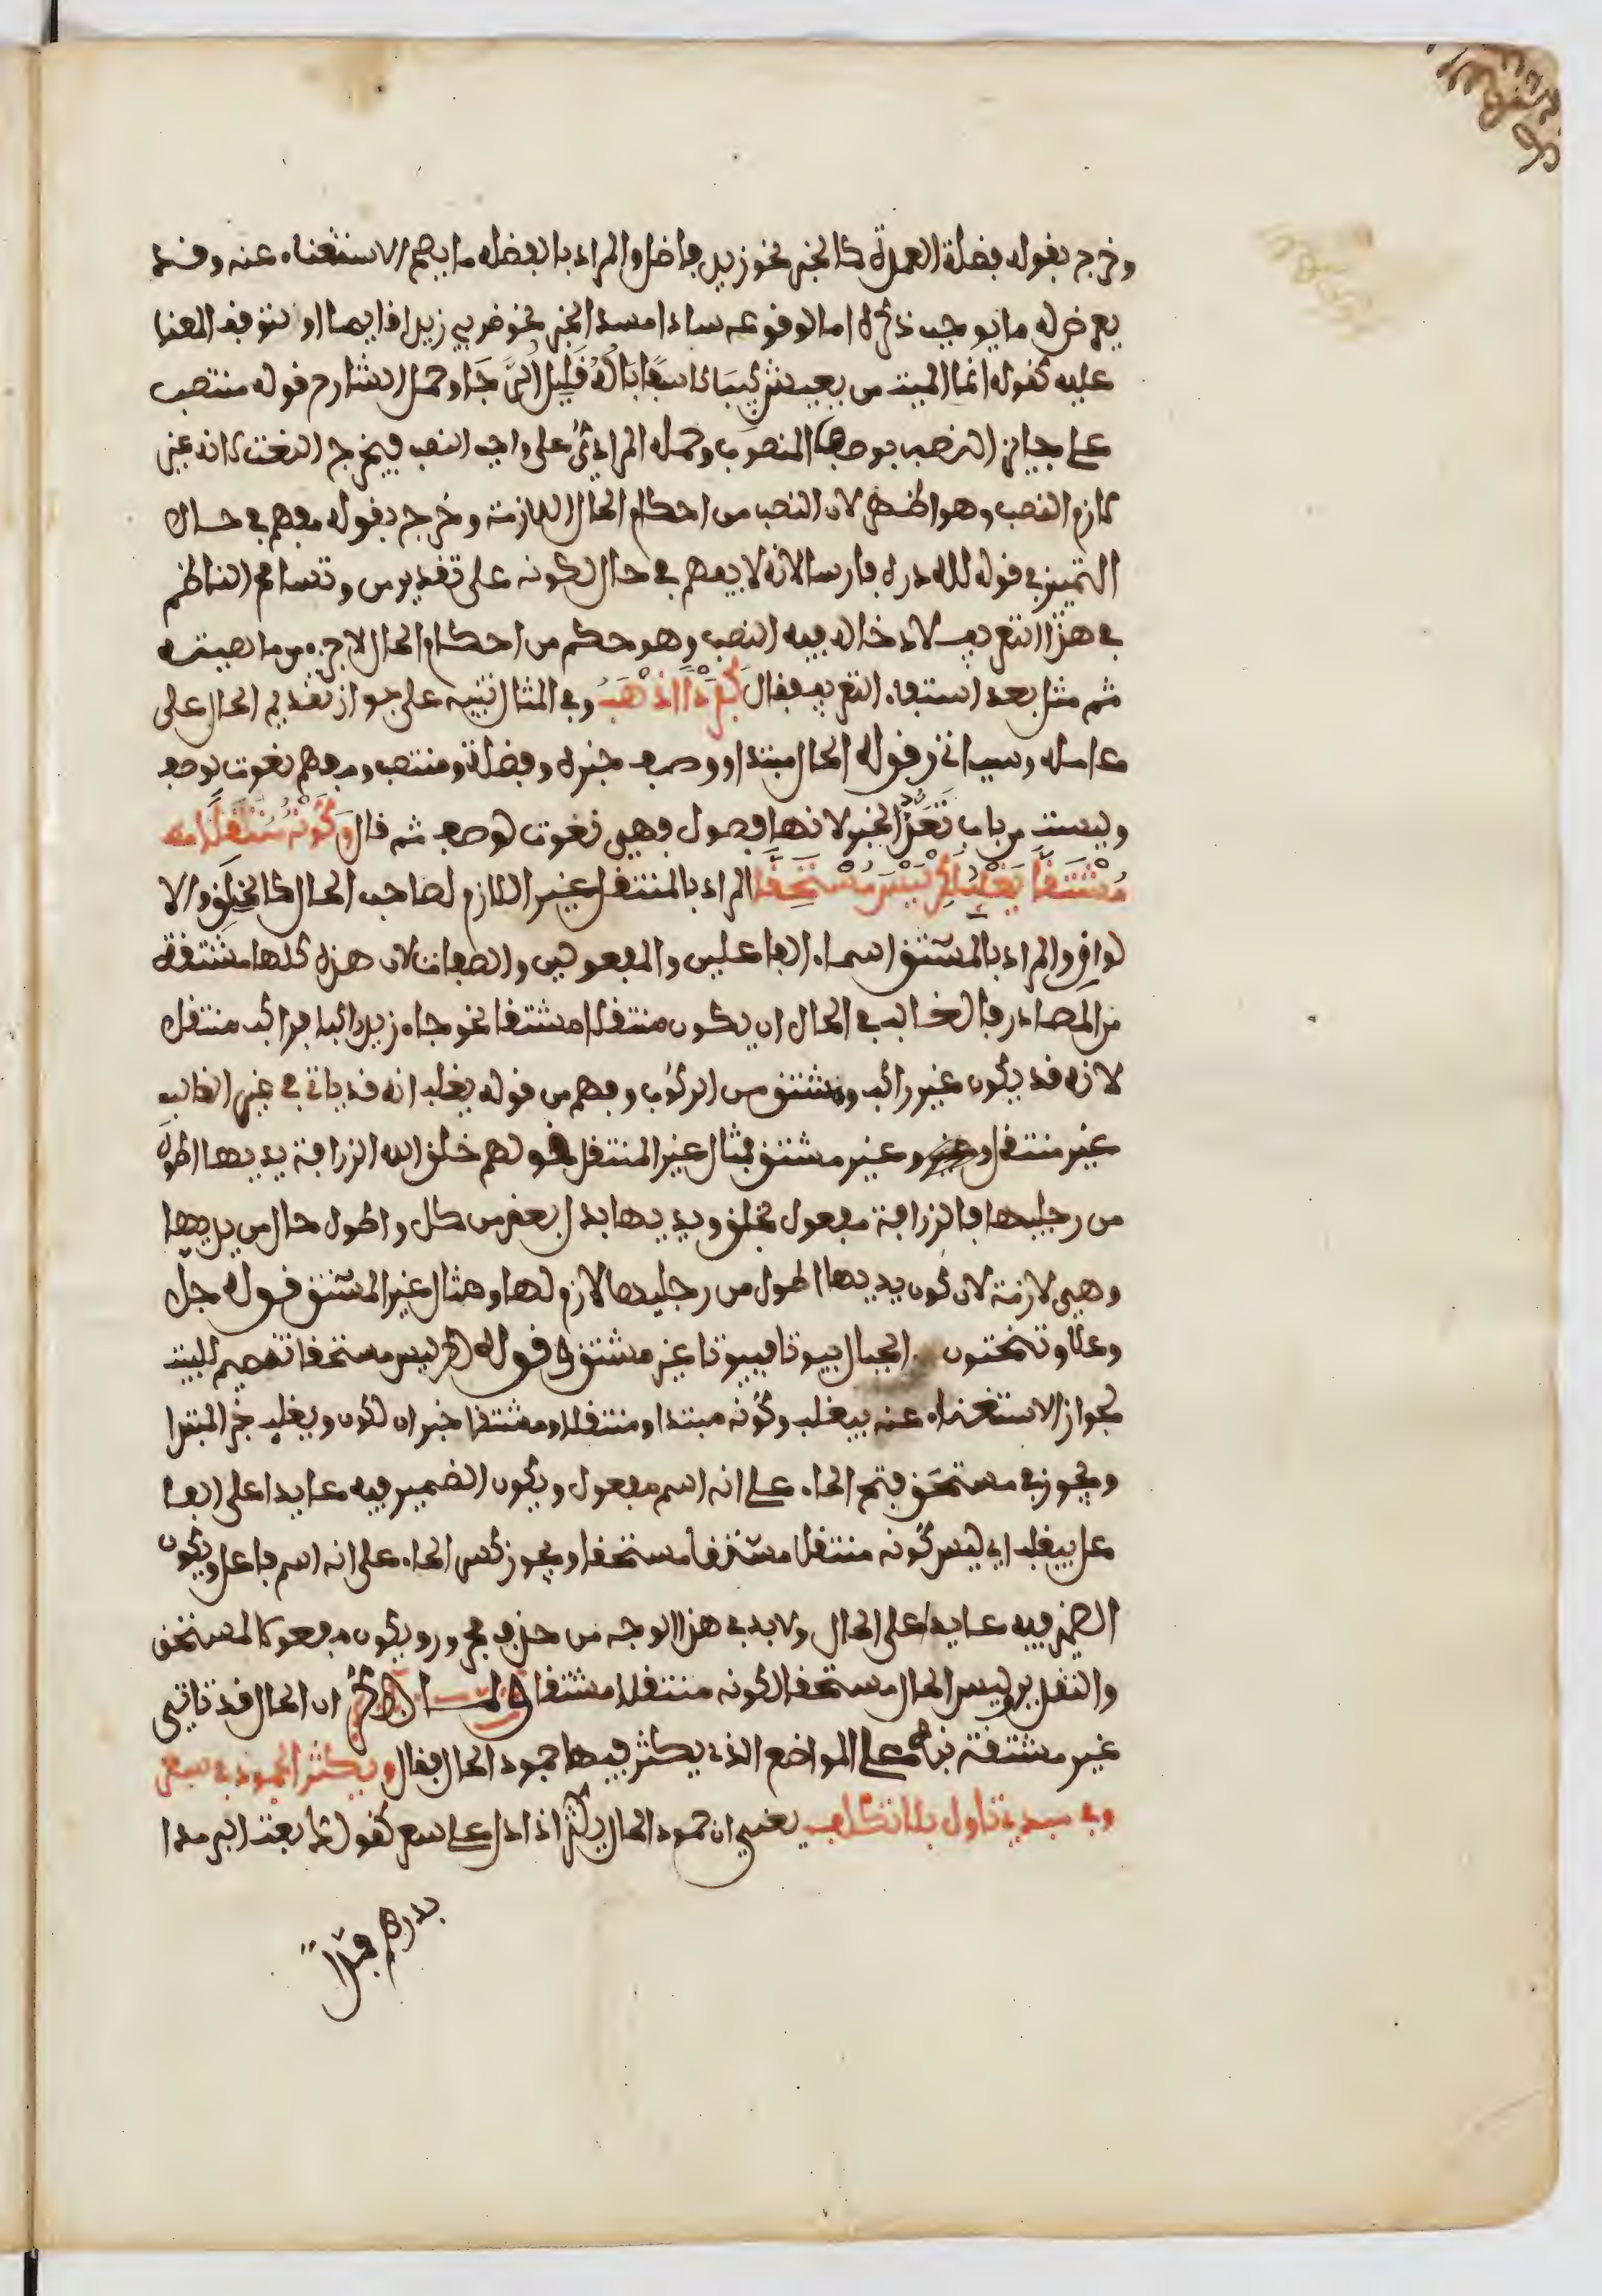 وخرج بقوله فضلة العمدة كالخبر نحو زيد فاضل والمراد بالفضلة ما يصح الاستغناء عنه وقد
يعرض له ما يوجب ذكره اما لوقوعه سادا مسد الخبر نحو ضربي زيدا قايما او لتوقف المعنا
عليه كقوله انما الميت من يعيش كييبا كاسفا باله قليل الرجا وحمل الشارح قوله منتصب
على جايز النصب بوصفها المنصوب وحمله المرادي على واجب النصب فيخرج النعت لانه غير
لازم النصب وهو اظهر لان النصب من احكام الحال اللازمة وخرج بقوله مفهم في حال
التمييز في قوله لله دره فارسا لانه لا يفهم في حال لكونه على تقدير من وتسامح الناظم
في هذا التعريف لادخاله فيه النصب وهو حكم من احكام الحال لا جزء من ماهيته
ثم مثل بعد استيفاء التعريف فقال كفردا اذهب وفي المثال تنبيه على جواز تقديم الحال على
عامله وسياتي وقوله الحال مبتدا ووصف خبره وفضلة ومنتصب ومفهم نعوت لوصف
وليست من باب تعدد الخبر لانها فصول فهي نعوت لوصف ثم قال وكونه منتقلا
مشتقا يغلب لكن ليس مستحقا المراد بالمنتقل غير اللازم لصاحب الحال كالخلق والا
لوان والمراد بالمشتق اسماء الفاعلين والمفعولين والصفات لان هذه كلها مشتقة
من المصادر فالغالب في الحال ان يكون منتقلا مشتقا نحو جاء زيد راكبا فراكب منتقل
لانه قد يكون غير راكب ومشتق من الركوب وفهم من قوله يغلب انه قد ياتي في غير الغالب
غير منتقل وغير مشتق فمثال غير المنتقل قولهم خلق الله الزرافة يديها اطول
من رجليها فالزرافة مفعول بخلق ويديها بدل بعض من كل واطول حال من يديها
وهي لازمة لان كون يديها اطول من رجليها لازم لها ومثال غير المشتق قوله جل
وعلا وتنحتون الجبال بيوتا فبيوتا غير مشتق وقوله لكن ليس مستحقا تتميم للبيت
لجواز الاستغناء عنه بيغلب وكونه مبتدا ومنتقلا ومشتقا خبران لكون ويغلب خبر المبتدا
ويجوز في مستحق فتح الحاء على انه اسم مفعول ويكون الضمير فيه عايدا على الفا
عل بيغلب اي ليس كونه منتقلا مشتقا مستحقا ويجوز كسر الحاء على انه اسم فاعل ويكون
الضمير فيه عايدا على الحال ولابد في هذا الوجه من حذف مجرور ويكون مفعولا لمستحق
والتقدير وليس الحال مستحقا لكونه منتقلا مشتقا ولما ذكر ان الحال قد تاتي
غير مشتقة نبه على المواضع الذي يكثر فيها جمود الحال فقال ويكثر الجمود في سعر
وفي مبدي تاول بلا تكلف يعني ان جمود الحال يكثر اذا دل على سعر كقولك بعت البر مدا
بدرهم